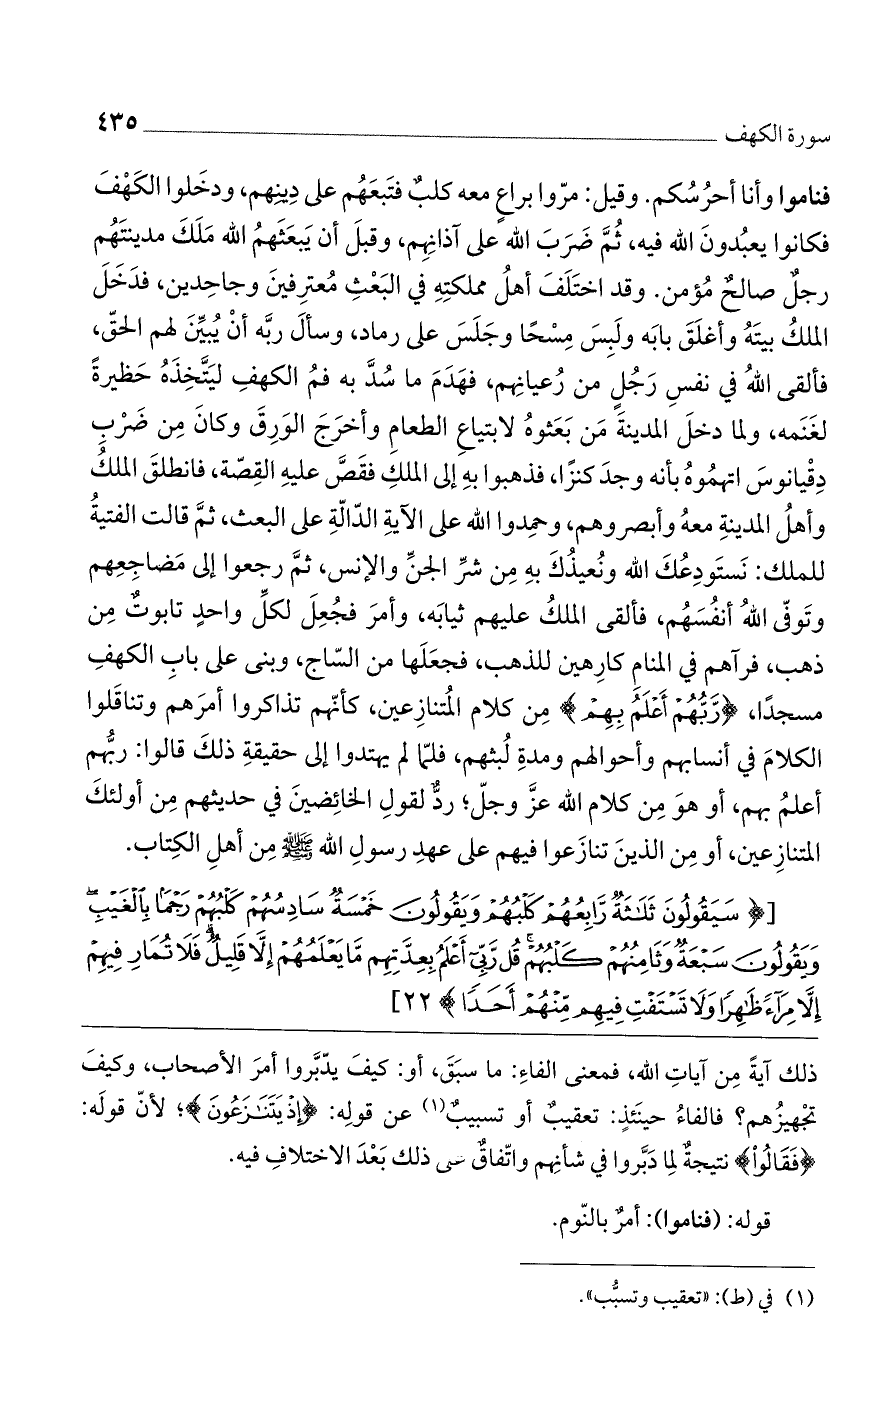 سورة الكهف ٤٣٥
فناموا وأنا أحرُسُكم. وقيل: مرّوا براعٍ معه كلبٌ فتَبعَهُم على دِينِهم، ودخَلوا الكَهْفَ
فكانوا يعبُدونَ الله فيه، ثُمَّ ضَرَبَ الله على آذانِهم، وقبلَ أن يَبعَثَهمُ الله مَلَكَ مدينتَهُم
رجلٌ صالحٌ مُؤمن. وقد اختَلَفَ أهلُ مملكتِهِ في البَعْثِ مُعترِفينَ وجاحِدين، فدَخَلَ
الملكُ بيتَهُ وأغلَقَ بابَه ولَبِسَ مِسْحًا وجَلَسَ على رماد، وسألَ ربَّه أنْ يُبيِّنَ لهم الحقّ،
فألقى اللهُ في نفسِ رَجُلٍ من رُعيانِهم، فهَدَمَ ما سُدَّ به فمُ الكهفِ ليَتَّخِذَهُ حَظيرةً
لغَنَمه، ولما دخلَ المدينةَ مَن بَعَثوهُ لابتياعِ الطعامِ وأخرَجَ الوَرِقَ وكانَ مِن ضَرْبِ
دِقْيانوسَ اتهمُوهُ بأنه وجدَ كنزًا، فذهبوا بهِ إلى الملكِ فقَصَّ عليهِ القِصّة، فانطلقَ الملكُ
وأهلُ المدينةِ معهُ وأبصروهم، وحمِدوا الله على الآيةِ الدّالّةِ على البعث، ثمَّ قالت الفتيةُ
للملك: نَستَودِعُكَ الله ونُعيذُكَ بهِ مِن شرِّ الجنِّ والإنس، ثمَّ رجعوا إلى مَضاجِعِهم
وتَوفّى اللهُ أنفُسَهُم، فألقى الملكُ عليهم ثيابَه، وأمرَ فجُعِلَ لكلِّ واحدٍ تابوتٌ مِن
ذهب، فرآهم في المنامِ كارِهين للذهب، فجعَلَها من السّاج، وبنى على بابِ الكهفِ
مسجدًا، ﴿رَّبُّهُمْ أَعْلَمُ بِهِمْ﴾ مِن كلام المُتنازِعين، كأنّهم تذاكروا أمرَهم وتناقَلوا
الكلامَ في أنسابِهم وأحوالهم ومدةِ لُبثِهم، فلمّا لم يهتدوا إلى حقيقةِ ذلكَ قالوا: ربُّهم
أعلمُ بهم، أو هوَ مِن كلام الله عزَّ وجلّ؛ ردٌّ لقولِ الخائِضينَ في حديثهم مِن أولئكَ
المتنازِعين، أو مِن الذينَ تنازَعوا فيهم على عهدِ رسولِ الله ﷺ مِن أهلِ الكِتاب.
[﴿ سَيَقُولُونَ ثَلَٰثَةٌ رَّابِعُهُمْ كَلْبُهُمْ وَيَقُولُونَ خَمْسَةٌ سَادِسُهُمْ كَلْبُهُمْ رَجْمًۢا بِٱلْغَيْبِۖ
وَيَقُولُونَ سَبْعَةٌ وَثَامِنُهُمْ كَلْبُهُمْۚ قُل رَّبِّىٓ أَعْلَمُ بِعِدَّتِهِم مَّا يَعْلَمُهُمْ إِلَّا قَلِيلٌۗ فَلَا تُمَارِ فِيهِمْ
إِلَّا مِرَآءً ظَٰهِرًا وَلَا تَسْتَفْتِ فِيهِم مِّنْهُمْ أَحَدًا ﴾ ٢٢]
ذلك آيةً مِن آياتِ الله، فمعنى الفاءِ: ما سبَقَ، أو: كيفَ يدّبَّروا أمرَ الأصحاب، وكيفَ
تجْهيزُهم؟ فالفاءُ حينَئذٍ: تعقيبٌ أو تسبيبٌ(١) عن قولِه: ﴿إِذْ يَتَنَٰزَعُونَ﴾؛ لأنّ قولَه:
﴿فَقَالُوا۟﴾ نتيجةٌ لِما دَبَّروا في شأنِهم واتّفاقٌ ذلك بَعْدَ الاختلافِ فيه.
قوله: (فناموا): أمرٌ بالنّوم.
(١) في (ط): «تعقيب وتسبُّب».